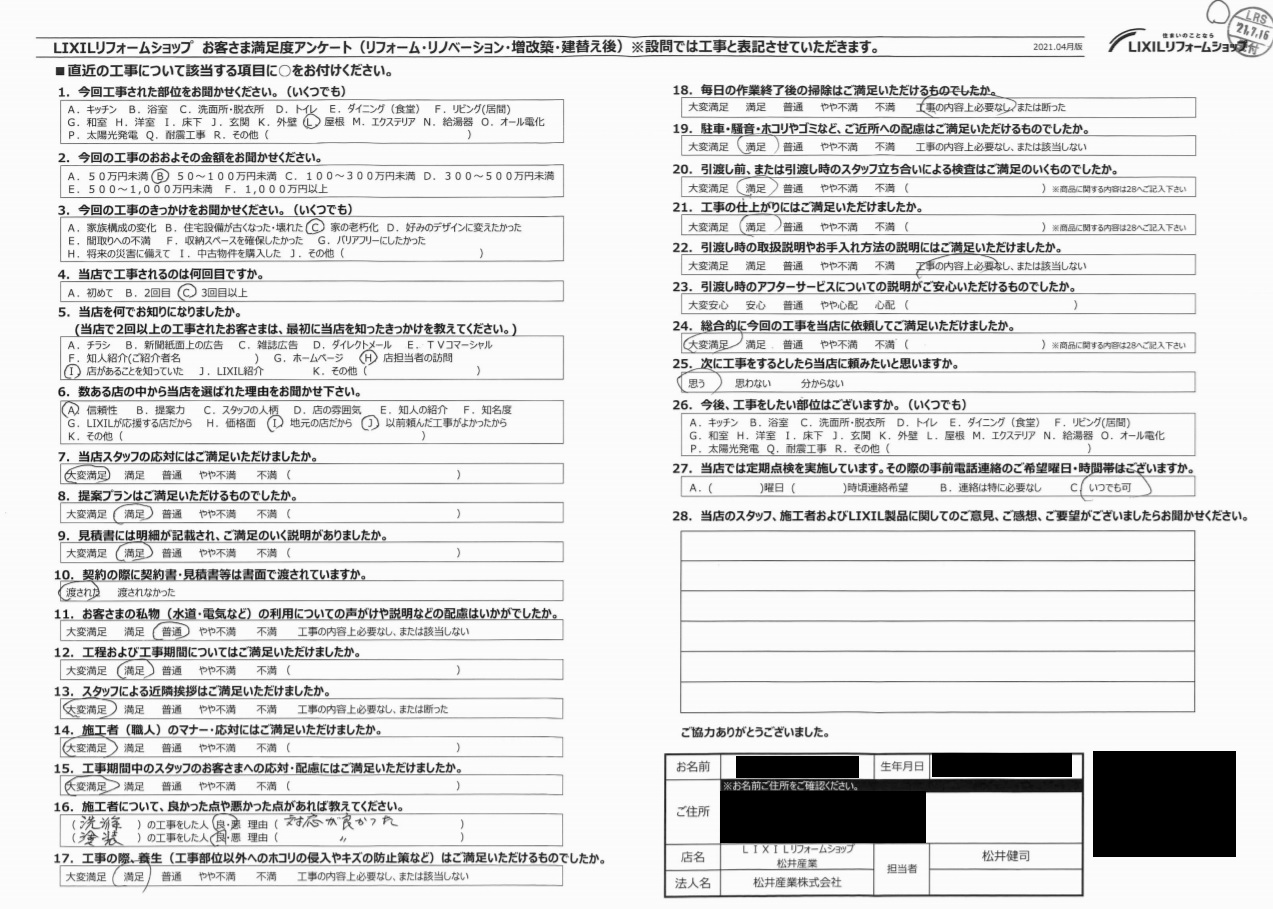 LIXILリフォームショップ お客さま満足度アンケート（リフォーム・リノベーション・増改築・建替え後）※設問では工事と表記させていただきます。
2021.04月版
住まいのことなら
LIXILリフォームショップ
LRS
21.7.16
付
■直近の工事について該当する項目に○をお付けください。
1．今回工事された部位をお聞かせください。（いくつでも）
A．キッチン B．浴室 C．洗面所・脱衣所 D．トイレ E．ダイニング（食堂） F．リビング(居間)
G．和室 H．洋室 I．床下 J．玄関 K．外壁 L．屋根 M．エクステリア N．給湯器 O．オール電化
P．太陽光発電 Q．耐震工事 R．その他（ ）
2．今回の工事のおおよその金額をお聞かせください。
A．50万円未満 B 50～100万円未満 C．100～300万円未満 D．300～500万円未満
E．500～1,000万円未満 F．1,000万円以上
3．今回の工事のきっかけをお聞かせください。（いくつでも）
A．家族構成の変化 B．住宅設備が古くなった・壊れた C 家の老朽化 D．好みのデザインに変えたかった
E．間取りへの不満 F．収納スペースを確保したかった G．バリアフリーにしたかった
H．将来の災害に備えて I．中古物件を購入した J．その他（ ）
4．当店で工事されるのは何回目ですか。
A．初めて B．2回目 C 3回目以上
5．当店を何でお知りになりましたか。
(当店で2回以上の工事されたお客さまは、最初に当店を知ったきっかけを教えてください。)
A．チラシ B．新聞紙面上の広告 C．雑誌広告 D．ダイレクトメール E．TVコマーシャル
F．知人紹介(ご紹介者名 ） G．ホームページ H 店担当者の訪問
I 店があることを知っていた J．LIXIL紹介 K．その他（ ）
6．数ある店の中から当店を選ばれた理由をお聞かせ下さい。
A 信頼性 B．提案力 C．スタッフの人柄 D．店の雰囲気 E．知人の紹介 F．知名度
G．LIXILが応援する店だから H．価格面 I 地元の店だから J 以前頼んだ工事がよかったから
K．その他（ ）
7．当店スタッフの応対にはご満足いただけましたか。
大変満足 満足 普通 やや不満 不満（ ）
8．提案プランはご満足いただけるものでしたか。
大変満足 満足 普通 やや不満 不満（ ）
9．見積書には明細が記載され、ご満足のいく説明がありましたか。
大変満足 満足 普通 やや不満 不満（ ）
10．契約の際に契約書・見積書等は書面で渡されていますか。
渡された 渡されなかった
11．お客さまの私物（水道・電気など）の利用についての声がけや説明などの配慮はいかがでしたか。
大変満足 満足 普通 やや不満 不満 工事の内容上必要なし、または該当しない
12．工程および工事期間についてはご満足いただけましたか。
大変満足 満足 普通 やや不満 不満（ ）
13．スタッフによる近隣挨拶はご満足いただけましたか。
大変満足 満足 普通 やや不満 不満 工事の内容上必要なし、または断った
14．施工者（職人）のマナー・応対にはご満足いただけましたか。
大変満足 満足 普通 やや不満 不満（ ）
15．工事期間中のスタッフのお客さまへの応対・配慮にはご満足いただけましたか。
大変満足 満足 普通 やや不満 不満（ ）
16．施工者について、良かった点や悪かった点があれば教えてください。
（洗滌 ）の工事をした人 良・悪 理由（ 対応が良かった ）
（塗装 ）の工事をした人 良・悪 理由（ 〃 ）
17．工事の際、養生（工事部位以外へのホコリの侵入やキズの防止策など）はご満足いただけるものでしたか。
大変満足 満足 普通 やや不満 不満 工事の内容上必要なし、または該当しない
18．毎日の作業終了後の掃除はご満足いただけるものでしたか。
大変満足 満足 普通 やや不満 不満 工事の内容上必要なし、または断った
19．駐車・騒音・ホコリやゴミなど、ご近所への配慮はご満足いただけるものでしたか。
大変満足 満足 普通 やや不満 不満 工事の内容上必要なし、または該当しない
20．引渡し前、または引渡し時のスタッフ立ち合いによる検査はご満足のいくものでしたか。
大変満足 満足 普通 やや不満 不満（ ）※商品に関する内容は28へご記入下さい
21．工事の仕上がりにはご満足いただけましたか。
大変満足 満足 普通 やや不満 不満（ ）※商品に関する内容は28へご記入下さい
22．引渡し時の取扱説明やお手入れ方法の説明にはご満足いただけましたか。
大変満足 満足 普通 やや不満 不満 工事の内容上必要なし、または該当しない
23．引渡し時のアフターサービスについての説明がご安心いただけるものでしたか。
大変安心 安心 普通 やや心配 心配（ ）
24．総合的に今回の工事を当店に依頼してご満足いただけましたか。
大変満足 満足 普通 やや不満 不満（ ）※商品に関する内容は28へご記入下さい
25．次に工事をするとしたら当店に頼みたいと思いますか。
思う 思わない 分からない
26．今後、工事をしたい部位はございますか。（いくつでも）
A．キッチン B．浴室 C．洗面所・脱衣所 D．トイレ E．ダイニング（食堂） F．リビング(居間)
G．和室 H．洋室 I．床下 J．玄関 K．外壁 L．屋根 M．エクステリア N．給湯器 O．オール電化
P．太陽光発電 Q．耐震工事 R．その他（ ）
27．当店では定期点検を実施しています。その際の事前電話連絡のご希望曜日・時間帯はございますか。
A．（ ）曜日（ ）時頃連絡希望 B．連絡は特に必要なし C いつでも可
28．当店のスタッフ、施工者およびLIXIL製品に関してのご意見、ご感想、ご要望がございましたらお聞かせください。
ご協力ありがとうございました。
お名前 生年月日
※お名前ご住所をご確認ください。
ご住所
店名 LIXILリフォームショップ 松井産業 担当者 松井健司
法人名 松井産業株式会社